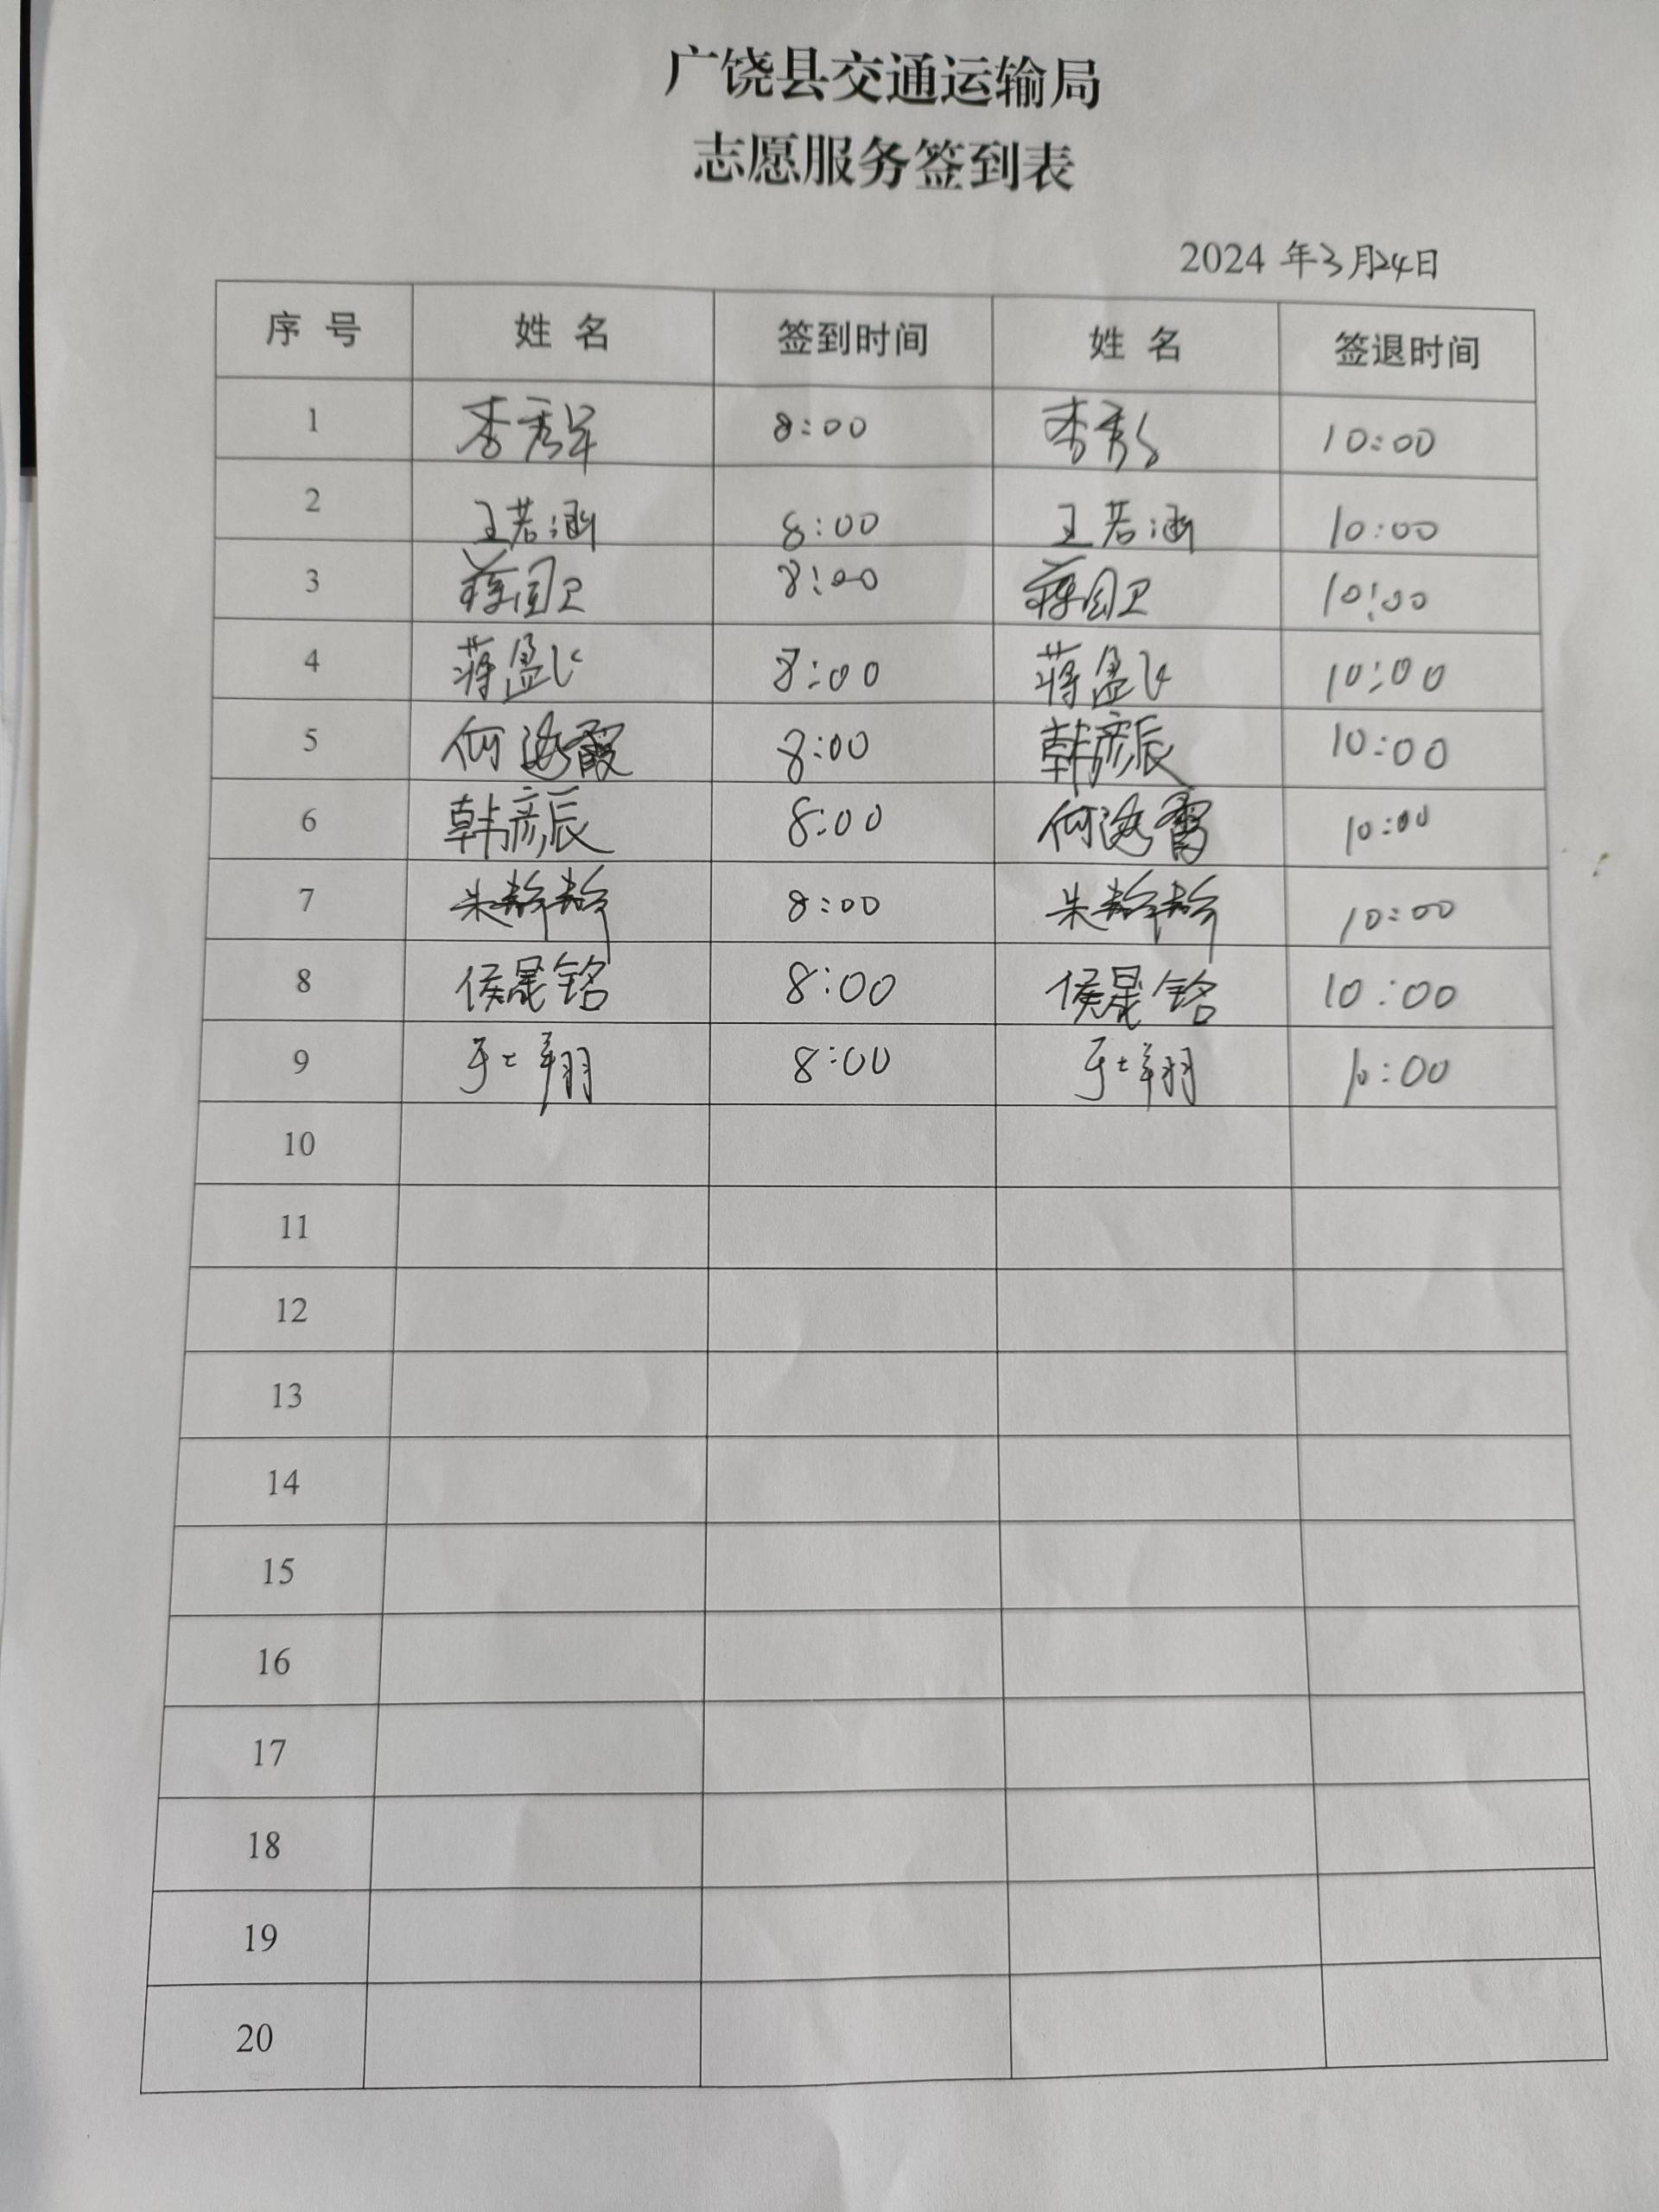 广饶县交通运输局
志愿服务签到表
2024 年3月24日
序 号 姓 名 签到时间 姓 名 签退时间
1 李秀军 8:00 李秀 10:00
2 王若涵 8:00 王若涵 10:00
3 蒋国卫 8:00 蒋国卫 10:00
4 蒋盈飞 8:00 蒋盈飞 10:00
5 何 霞 8:00 韩彦辰 10:00
6 韩彦辰 8:00 何 霞 10:00
7 朱 8:00 朱 10:00
8 侯晟铭 8:00 侯晟铭 10:00
9 于士翔 8:00 于士翔 10:00
10
11
12
13
14
15
16
17
18
19
20